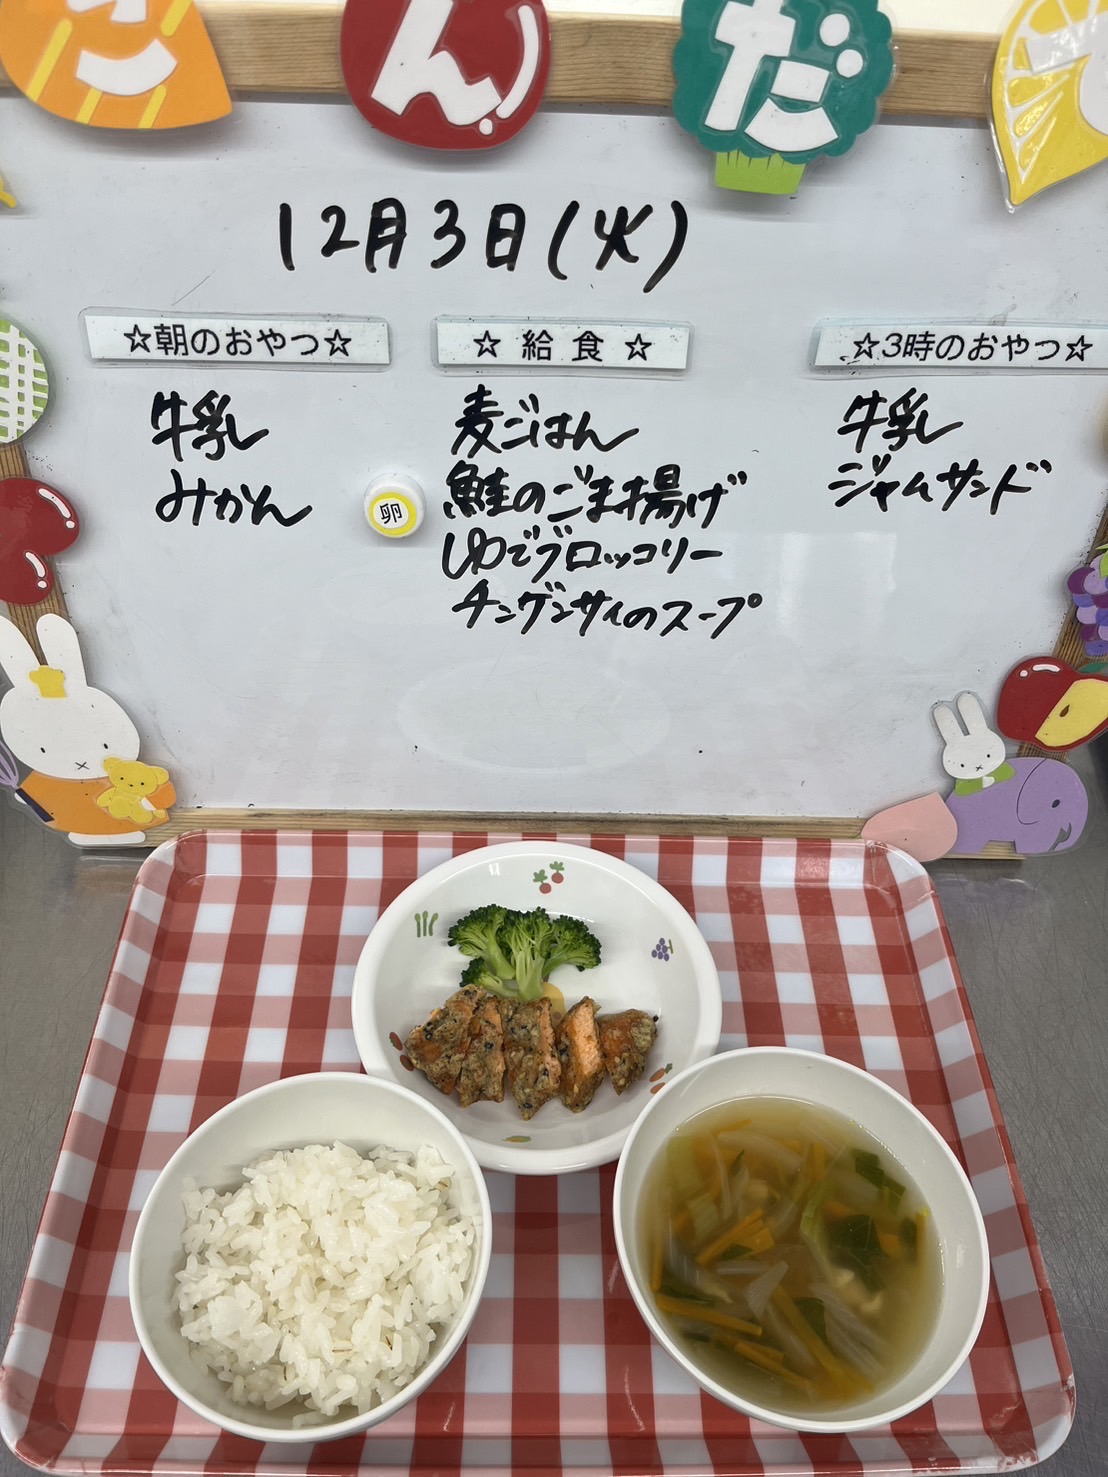 こんだて
12月3日(火)
☆朝のおやつ☆
牛乳
みかん
☆ 給 食 ☆
麦ごはん
卵
鮭のごま揚げ
ゆでブロッコリー
チンゲンサイのスープ
☆3時のおやつ☆
牛乳
ジャムサンド